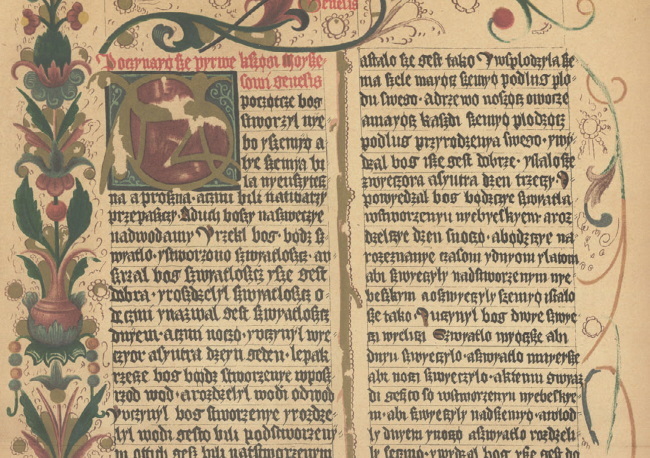 Genesis
Poczynayø sze pyrwe kszøgi Moyße-
sowi genesis
poczøtcze bog
stworzyl nye
bo y szemyø a
lye szemya bi
la nyeuszytecz
na a proszna · a czmi bili natwarzy
przepasczy · Aduch boszy naswyczye
nadwodamy Yrzekl bog · bødz sz
wyatlo · ystworzono szwyatloscz ·
szrzal bog szwyatloscz ysze gest
dobra · yrozdzelyl szwyatloscz o-
deczmi ynazwal gest szwyatloscz
dnyem · aczmi noczø · yuczynyl wye
czor asyutra dzen geden · lepak
rzecze bog bødz stworzenye wpos
rzod wod · arozdzelyl wodi odwod
Yuczynyl bog stworzenye yrozdze-
lyl wodi gesto bili podstworzeny
m ottich gesz bili nadstworzenym
astalo sze gest tako Ywsplodzyla sze
ma szele mayøcz szemyø podlug plo-
du swego · adrzewo noszøcz owocze
amayøcz kaszdi szemyø plodzøcz
podlug przyrodzenya swego · ywy
dzal bog isze gest dobrze · ystalosze
zwyeczora asyutra dzen trzeczy ·
powyedzal bog bødzcze szwyatla
wstworzenyu nyebyeskyem aroz
dzelcze dzen snoczø · abødzcze na
rozeznanye czasom ydnyom ylatom
abi szwyeczyly nadstworzenym nye
byeskym aoszwyeczyly szemyø ystalo
sze tako Yuczynyl bog dwye szwye
czy wyeliczi Szwyatlo wyøczsze abi
dnyu szwyeczylo · aszwyatlo mnyeysze
abi noczi szwyeczylo · aktemu gwyaz
di gesto so wstworzenyu nyebeskye-
m · abi szwyeczyly nadszemyø · awlod
ly dnyem ynoczø aszwyatlo rozdzeli
ly seczmø · ywydzal bog ysze gest do